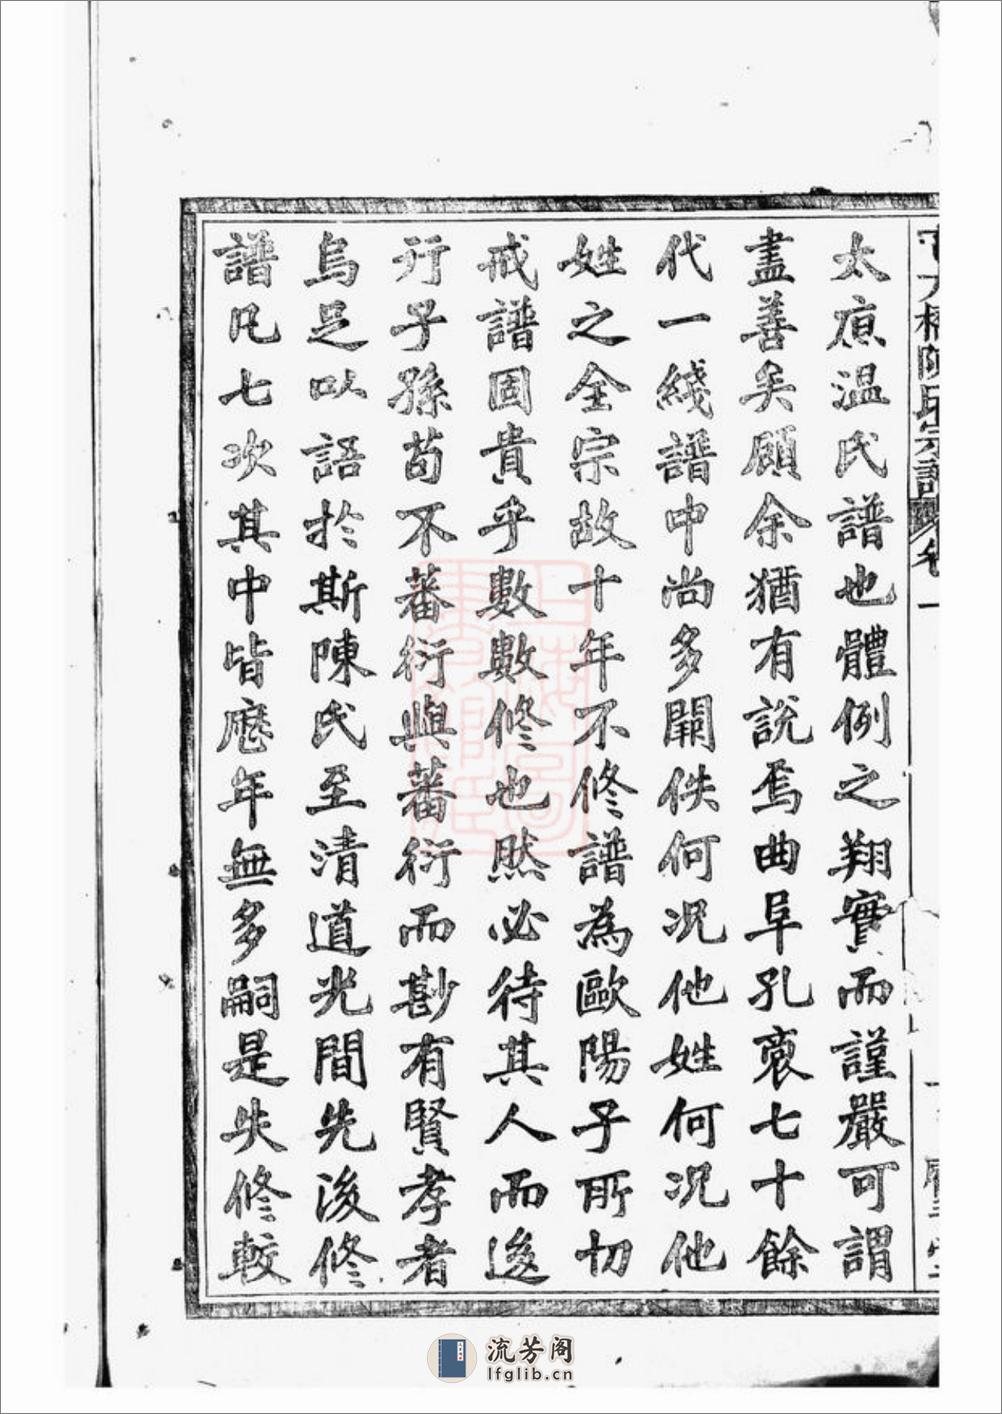 太原温氏譜也體例之翔實而謹嚴可謂
盡善矣顧余猶有説焉曲阜孔裔七十餘
代一綫譜中尚多闕佚何况他姓何况他
姓之全宗故十年不修譜為歐陽子所切
戒譜固貴乎數數修也然必待其人而後
行子孫苟不蕃衍與蕃衍而尠有賢孝者
烏足以語於斯陳氏至清道光間先後修
譜凡七次其中皆歷年無多嗣是失修較
橋陳氏宗譜 卷一
流芳阁
lfglib.cn